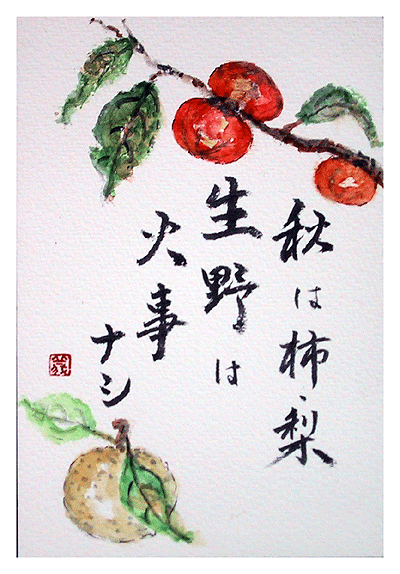 秋は柿・梨
生野は
火事
ナシ